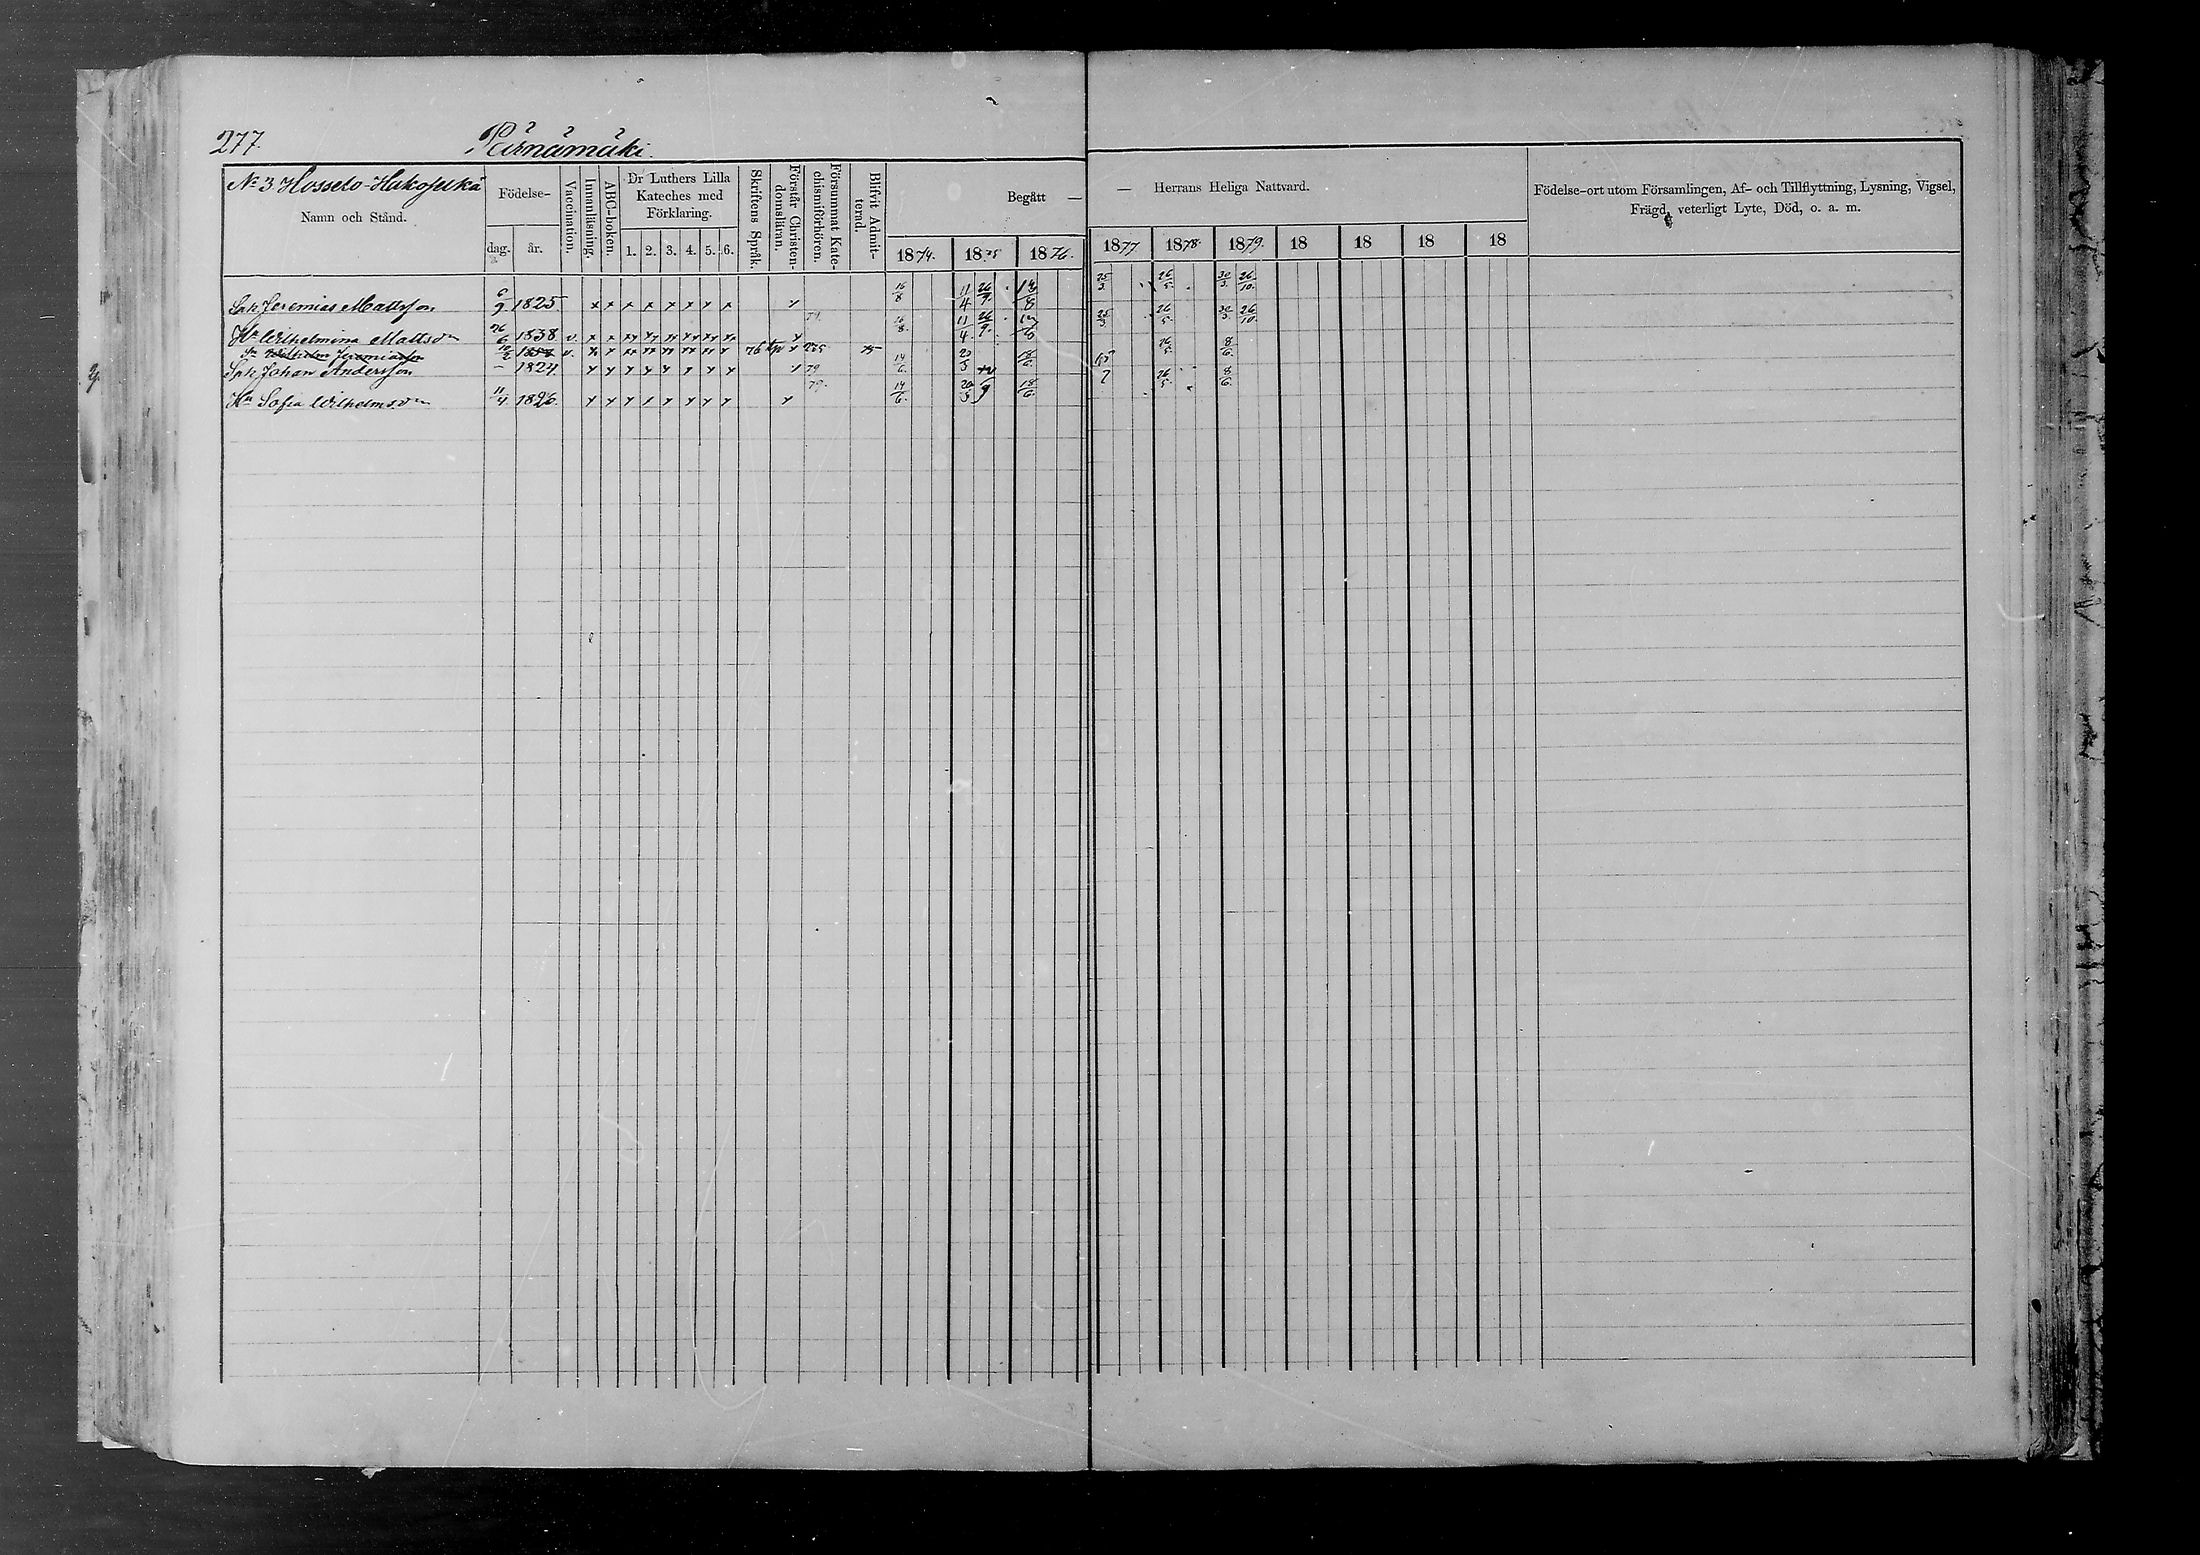 277.
Pärnämäki.
No 3 Hosseto-Hakojelkä
Namn och Stånd.
Födelse-
dag. år.
Vaccination.
Innanläsning.
ABC-boken.
Dr Luthers Lilla
Kateches med
Förklaring.
1. 2. 3. 4. 5. 6.
Skriftens Språk.
Förstår Christen-
domsläran.
Försummat Kate-
chismiförhören.
Blifvit Admit-
terad.
Begått —
1874. 1875 1876.
— Herrans Heliga Nattvard.
1877. 1878. 1879. 18 18 18 18
Födelse-ort utom Församlingen, Af- och Tillflyttning, Lysning, Vigsel,
Frägd, veterligt Lyte, Död, o. a. m.
Jeremias Mattsson 6/9 1825 x x x x x x x x 16/8 11/4 26/9 25/3 26/5 30/3 26/10
Hu Wilhelmina Mattsdn 26/6 1838 v. 79 16/8 11/4 26/9 25/3 26/5 30/3 26/10
Jeremiasson v. 76 75
Johan Andersson – 1824 79 14/6 20/5 18/6 26/5 8/6
Hu Sofia Wilhelmsdn 11/4 1826. 79. 14/6 20/5 18/6 26/5 8/6